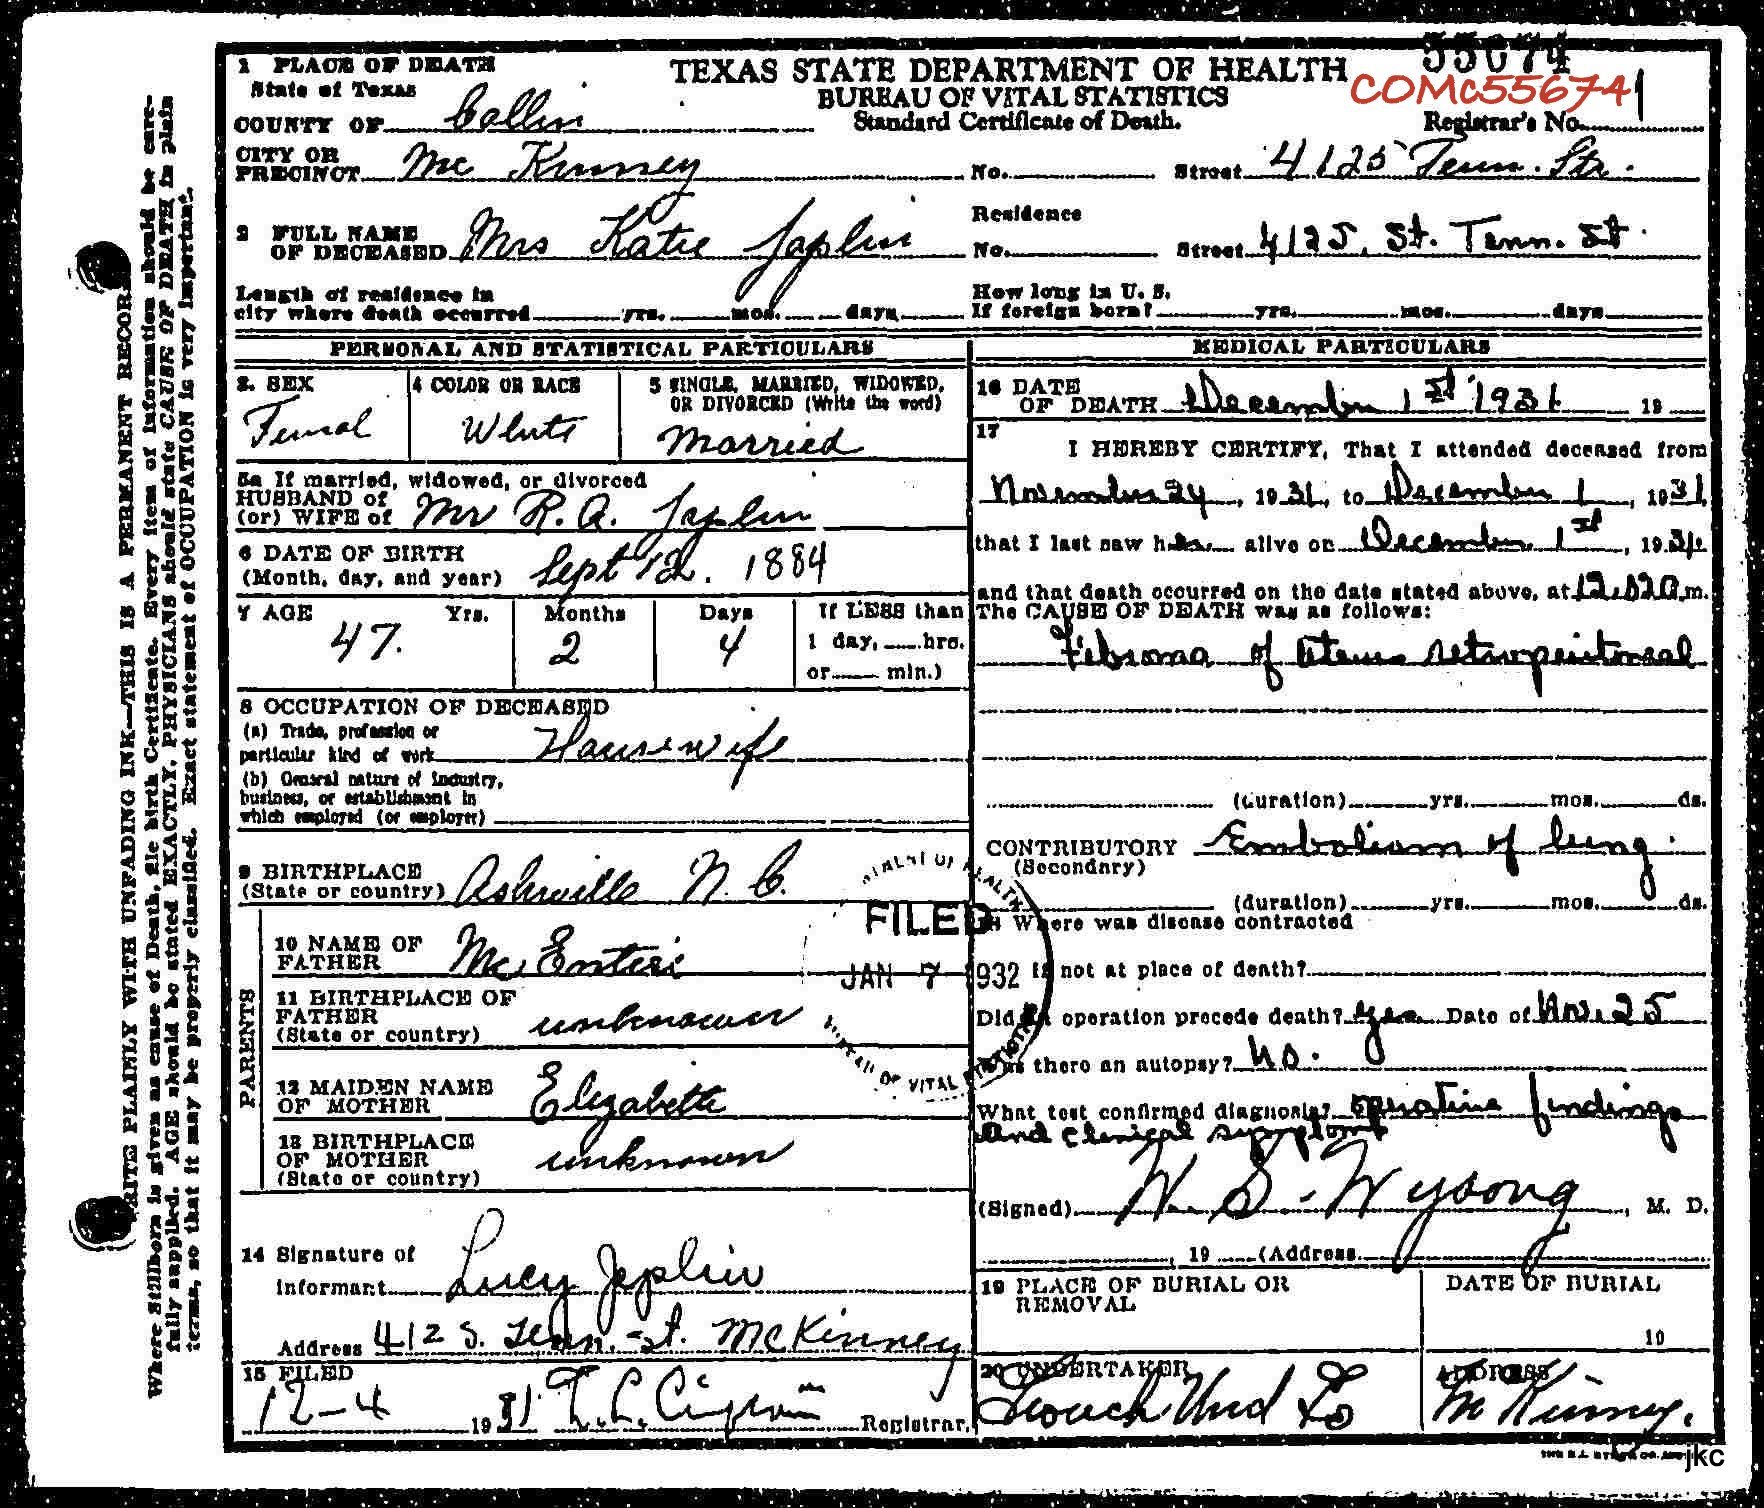 55674
COMc55674
1 PLACE OF DEATH
TEXAS STATE DEPARTMENT OF HEALTH
State of Texas
BUREAU OF VITAL STATISTICS
COUNTY OF Collin
Standard Certificate of Death.
Registrar's No. 1
CITY OR
PRECINCT Mc Kinney No. Street 412 S Tenn. Str.
2 FULL NAME
OF DECEASED Mrs Katie Joplin
Residence
No. Street 412 S. St. Tenn. St.
Length of residence in
city where death occurred yrs. mos. days
How long in U. S.
If foreign born? yrs. mos. days
PERSONAL AND STATISTICAL PARTICULARS
3. SEX
Femal
4 COLOR OR RACE
White
5 SINGLE, MARRIED, WIDOWED,
OR DIVORCED (Write the word)
Married
5a If married, widowed, or divorced
HUSBAND of
(or) WIFE of Mr R. A. Joplin
6 DATE OF BIRTH
(Month, day, and year) Sept 12. 1884
7 AGE Yrs. Months Days If LESS than
47. 2 4 1 day, hrs.
or min.)
8 OCCUPATION OF DECEASED
(a) Trade, profession or
particular kind of work Housewife
(b) General nature of industry,
business, or establishment in
which employed (or employer)
9 BIRTHPLACE
(State or country) Ashville N. C.
PARENTS
10 NAME OF
FATHER
11 BIRTHPLACE OF
FATHER
(State or country) unknown
12 MAIDEN NAME
OF MOTHER Elizabeth
13 BIRTHPLACE
OF MOTHER
(State or country) unknown
14 Signature of
Informant Lucy Joplin
Address 412 S. Tenn. St. McKinney
15 FILED
12-4 1931 Registrar.
MEDICAL PARTICULARS
16 DATE
OF DEATH December 1st 1931 19
17
I HEREBY CERTIFY, That I attended deceased from
November 24, 1931, to December 1, 1931,
that I last saw her alive on December 1st, 1931.
and that death occurred on the date stated above, at m.
The CAUSE OF DEATH was as follows:
Fibroma of Uterus retroperitoneal
(duration) yrs. mos. ds.
CONTRIBUTORY Embolism of lung.
(Secondary)
(duration) yrs. mos. ds.
18 Where was disease contracted
If not at place of death?
Did an operation precede death? yes Date of Nov. 25
Was there an autopsy? No.
What test confirmed diagnosis? operative findings
and clinical symptoms
(Signed) W. S. Wysong, M. D.
, 19 (Address
19 PLACE OF BURIAL OR
REMOVAL
DATE OF BURIAL
19
20 UNDERTAKER
Crouch Und Co
ADDRESS
McKinney.
FILED
JAN 7 1932
BUREAU OF VITAL STATISTICS
DEPARTMENT OF HEALTH
WRITE PLAINLY WITH UNFADING INK—THIS IS A PERMANENT RECORD
Where Stillborn is given as cause of Death, file birth Certificate. Every item of information should be care-
fully supplied. AGE should be stated EXACTLY. PHYSICIANS should state CAUSE OF DEATH in plain
terms, so that it may be properly classified. Exact statement of OCCUPATION is very important.
jkc